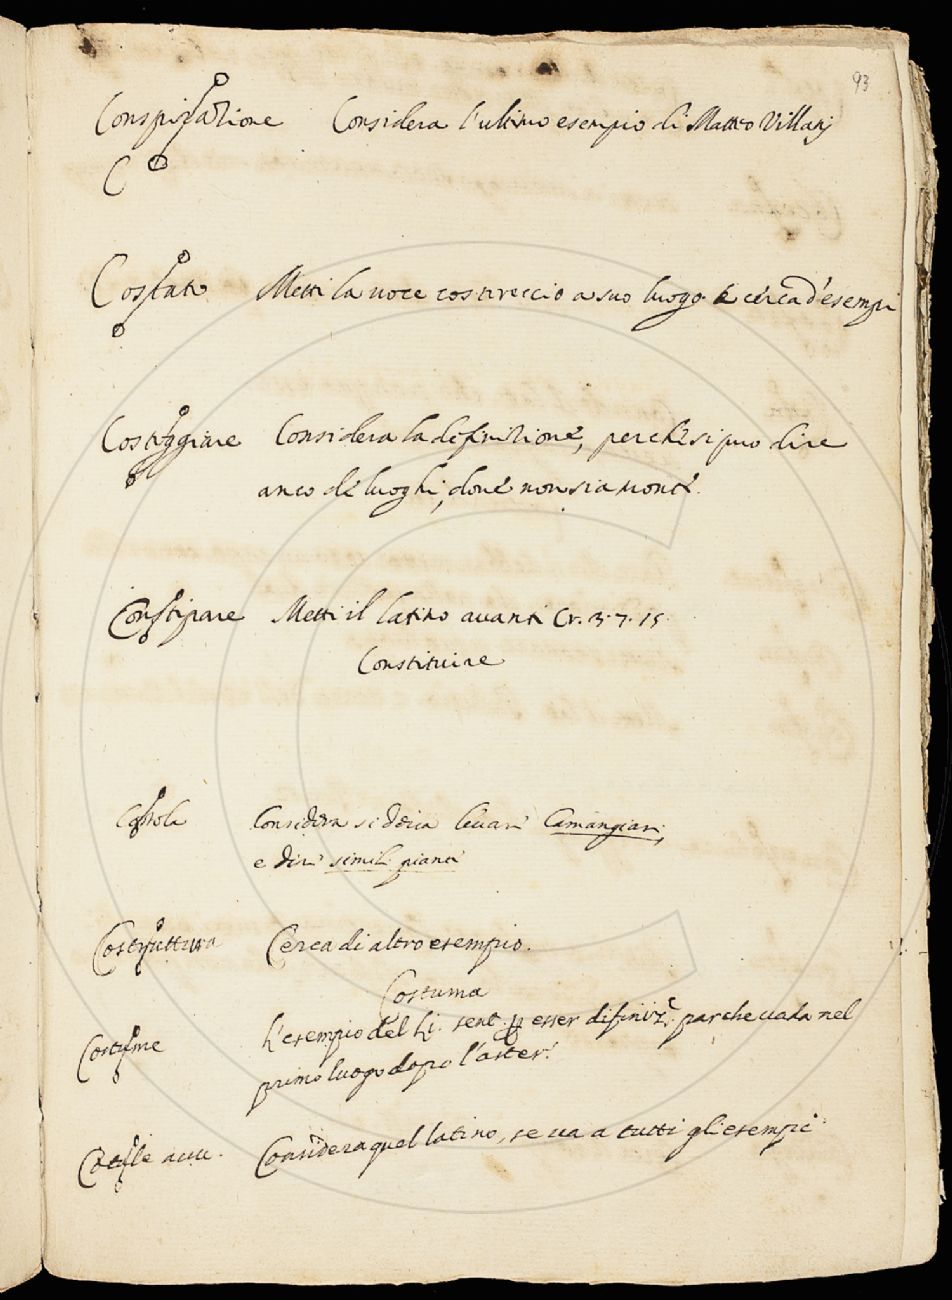 93
Conspirazione Considera l'ultimo esempio di Matteo Villanj
C
Costato Metti la uoce costereccio a suo luogo. e cerca d'esempi
Costeggiare Considera la definizione, perche si puo dire
anco de luoghi, doue non sia monte.
Constipare Metti il latino auanti Cr. 3. 7. 15.
Constituire
Considera si deua leuare Camangiari,
e dire simili piante
Costruttura Cerca di altro esempio.
Costuma
Costume L'esempio del li. sent. esser difiniz.e par che uada nel
primo luogo dopo l'aster.
Cotale auu. Considera quel latino, se ua a tutti gli esempi